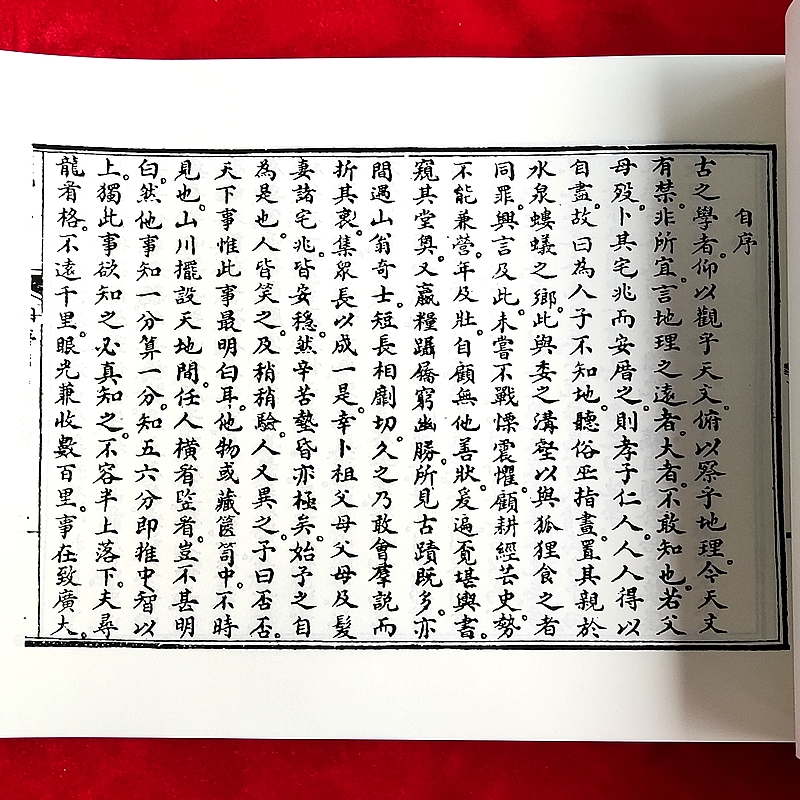 自序
古之學者。仰以觀乎天文。俯以察乎地理。今天文
有禁。非所宜言。地理之遠者。大者。不敢知也。若父
母歿。卜其宅兆而安厝之。則孝子仁人。人人得以
自盡。故曰為人子不知地。聽俗巫指畫。置其親於
水泉螻蟻之鄉。此與委之溝壑以與狐狸食之者
同罪。興言及此。未嘗不戰慄震懼。顧耕經芒史。勢
不能兼營。年及壯。自顧無他善狀。爰遍覓堪輿書。
窺其堂奧。又贏糧躡屩窮幽勝。所見古蹟既多。亦
間遇山翁奇士。短長相劘切。久之乃敢會羣說而
折其衷。集眾長以成一是。幸卜祖父母父母及髮
妻諸宅兆。皆安穩。然辛苦墊昏亦極矣。始予之自
為是也。人皆笑之。及稍稍驗。人又異之。予曰否否。
天下事惟此事最明白耳。他物或藏篋笥中。不時
見也。山川擺設天地間。任人橫看豎看。豈不甚明
白。然他事知一分算一分。知五六分即推中智以
上。獨此事欲知之必真知之。不容半上落下。夫尋
龍看格。不遠千里。眼光兼收數百里。事在致廣大。